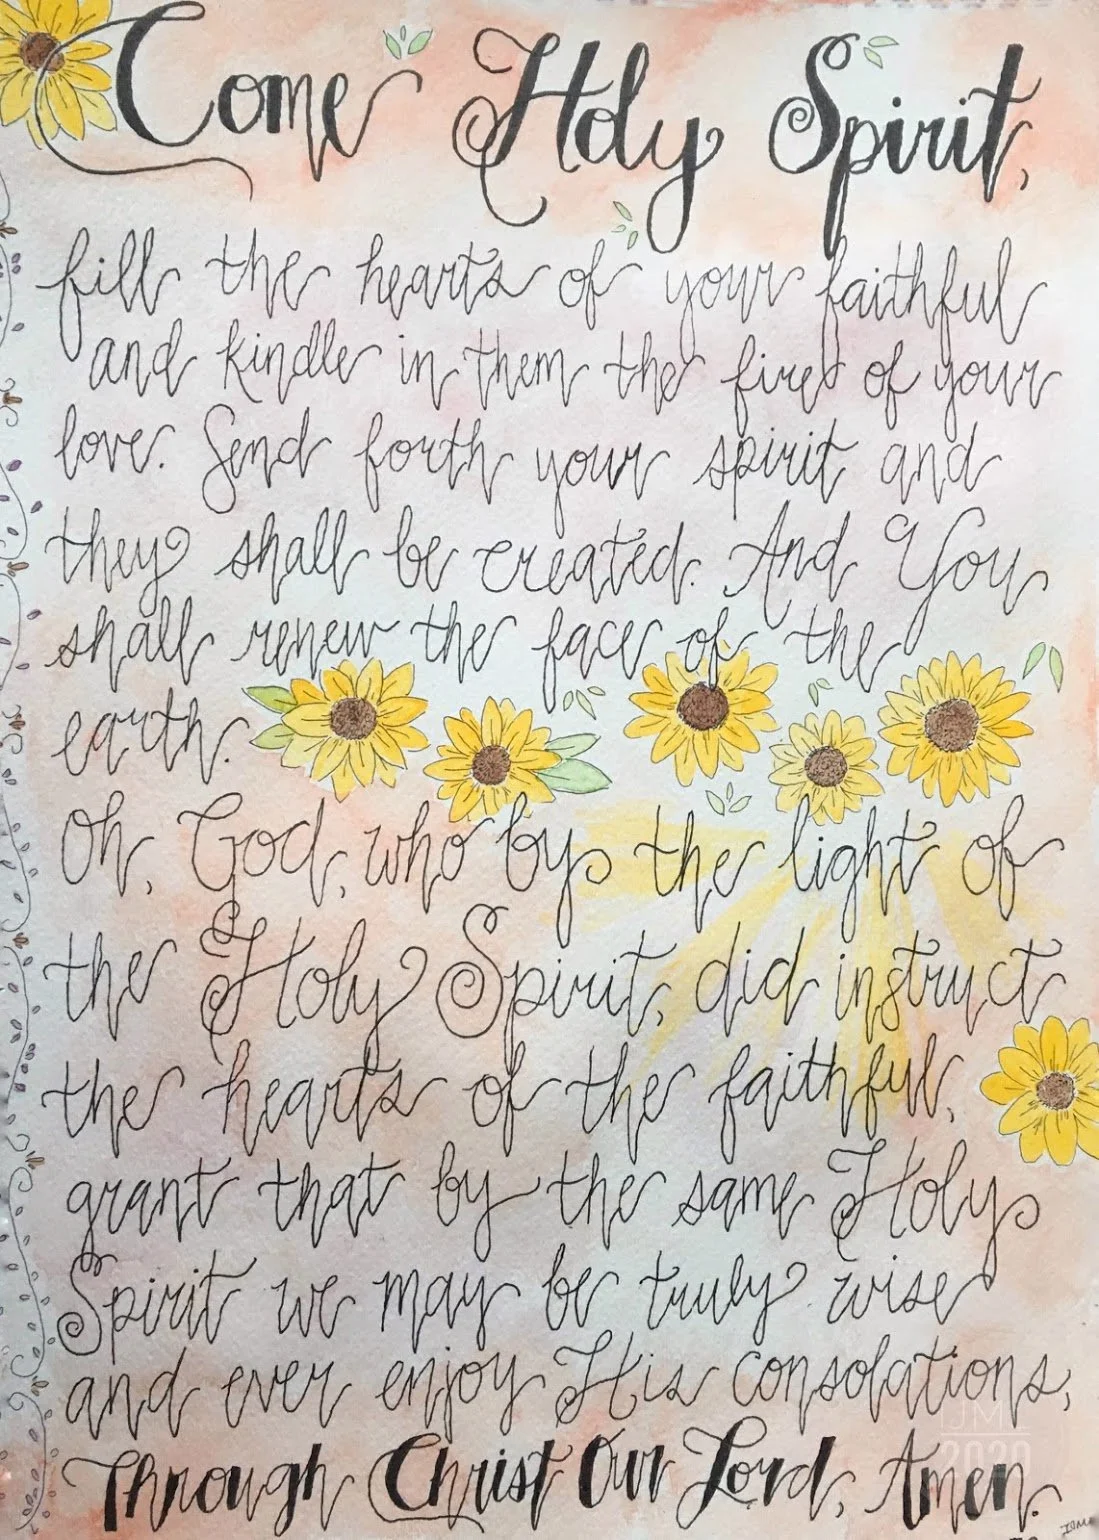 Come Holy Spirit,
fill the hearts of your faithful
and kindle in them the fire of your
love. Send forth your spirit and
they shall be created. And You
shall renew the face of the
earth.
Oh, God, who by the light of
the Holy Spirit, did instruct
the hearts of the faithful,
grant that by the same Holy
Spirit we may be truly wise
and ever enjoy His consolations,
Through Christ Our Lord, Amen.
2020